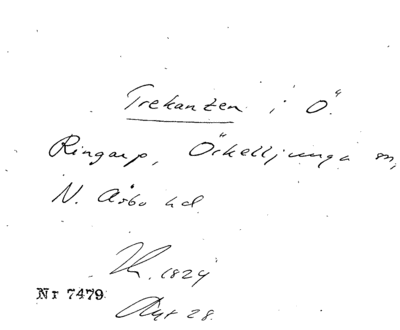 Trekanten i Ö.
Ringarp, Örkelljunga sn,
N. Åsbo hd
1824
Nr 7479
28.